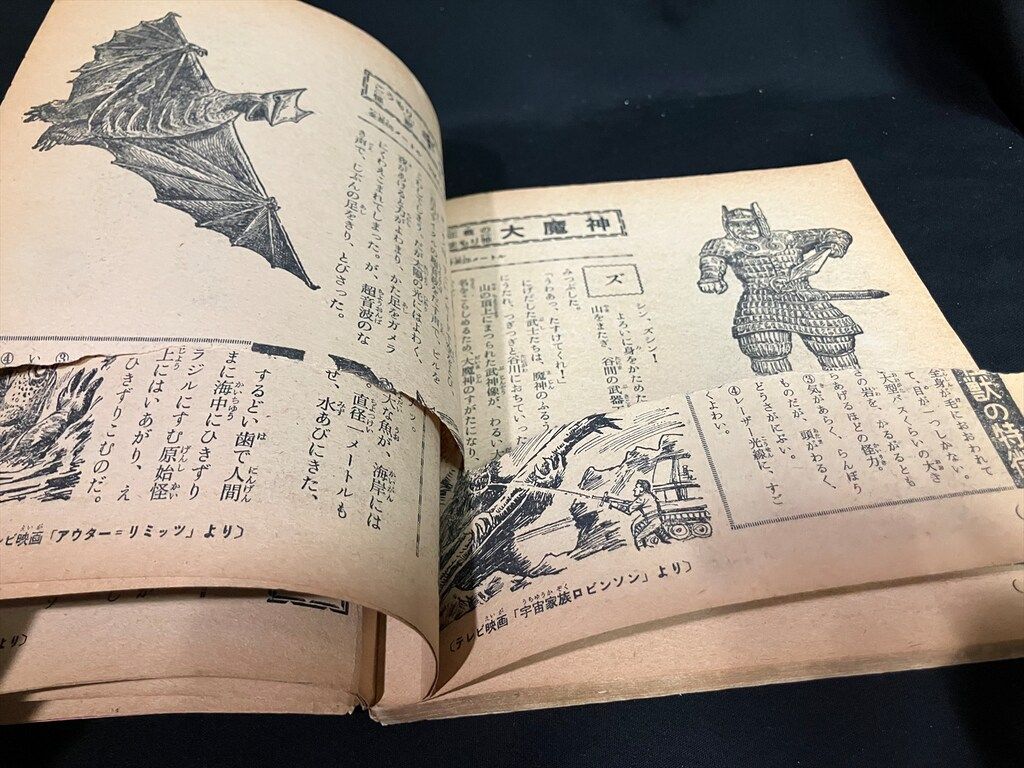 大魔神
ズ
シン、ズシン！
よろいに身をかためた
山をまたぎ、谷間の武器
みつぶした。
「うわあっ、たすけてくれ！」
にげだした武士たちは、魔神のふるう
にうたれ、つぎつぎと谷川におちていった
山の頂上にまつられた武神像が、わるい大
名をこらしめるため、大魔神のすがたになり
獣の特
全身が毛におおわれて
て、目が一つしかない。
大型バスくらいの大き
さの岩を、かるがるともち
あげるほどの怪力。
③気があらく、らんぼう
ものだが、頭がわるく、
どうさがにぶい。
④レーザー光線に、すご
くよわい。
（テレビ映画「宇宙家族ロビンソン」より）
よわってしまう。だが太陽の光にはよわく、
夜があけると力がよわまり、かた足をガメラ
にくわえこまれてしまった。が、超音波のな
き声で、じぶんの足をきり、とびさった。
大な魚が、海岸には
直径一メートルも
せ、水あびにきた、
するどい歯で人間
まに海中にひきずり
ラジルにすむ原始怪
上にはいあがり、え
ひきずりこむのだ。
③
い
④
ビ映画「アウター＝リミッツ」より）